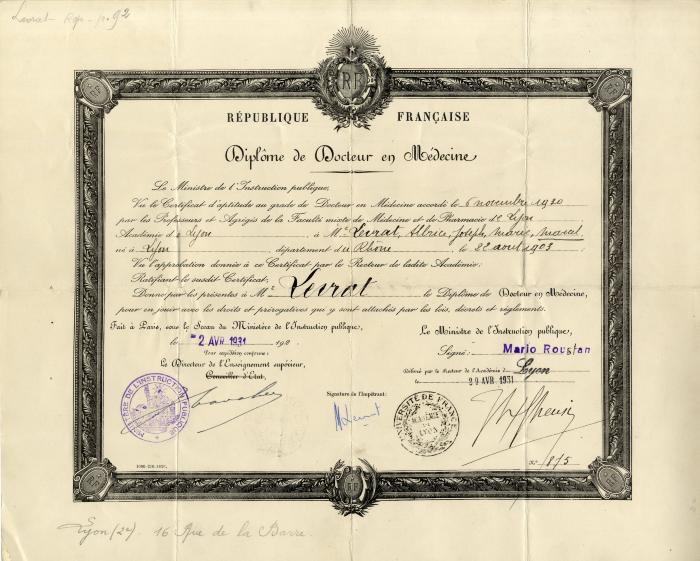 Levrat
p. 92
RF
RÉPUBLIQUE FRANÇAISE
Diplôme de Docteur en Médecine
Le Ministre de l'Instruction publique,
Vu le Certificat d'aptitude au grade de Docteur en Médecine accordé le 6 novembre 1930
par les Professeurs et Agrégés de la Faculté mixte de Médecine et de Pharmacie de Lyon
Académie de Lyon, à Mr Levrat, Albéric, Joseph, Marie, Marcel
né à Lyon, département du Rhône, le 22 août 1903;
Vu l'approbation donnée à ce Certificat par le Recteur de ladite Académie;
Ratifiant le susdit Certificat;
Donne par les présentes à Mr Levrat le Diplôme de Docteur en Médecine,
pour en jouir avec les droits et prérogatives qui y sont attachés par les lois, décrets et règlements.
Fait à Paris, sous le Sceau du Ministère de l'Instruction publique,
le 2 AVR 1931 190
Pour expédition conforme:
Le Directeur de l'Enseignement supérieur,
Conseiller d'Etat,
MINISTERE DE L'INSTRUCTION PUBLIQUE
Signature de l'Impétrant:
MLevrat
Le Ministre de l'Instruction publique,
Signé: Mario Roustan
Délivré par le Recteur de l'Académie de Lyon
le 20 AVR 1931
UNIVERSITÉ DE FRANCE
ACADÉMIE DE LYON
No 1875
Lyon (2e) 16 Rue de la Barre.